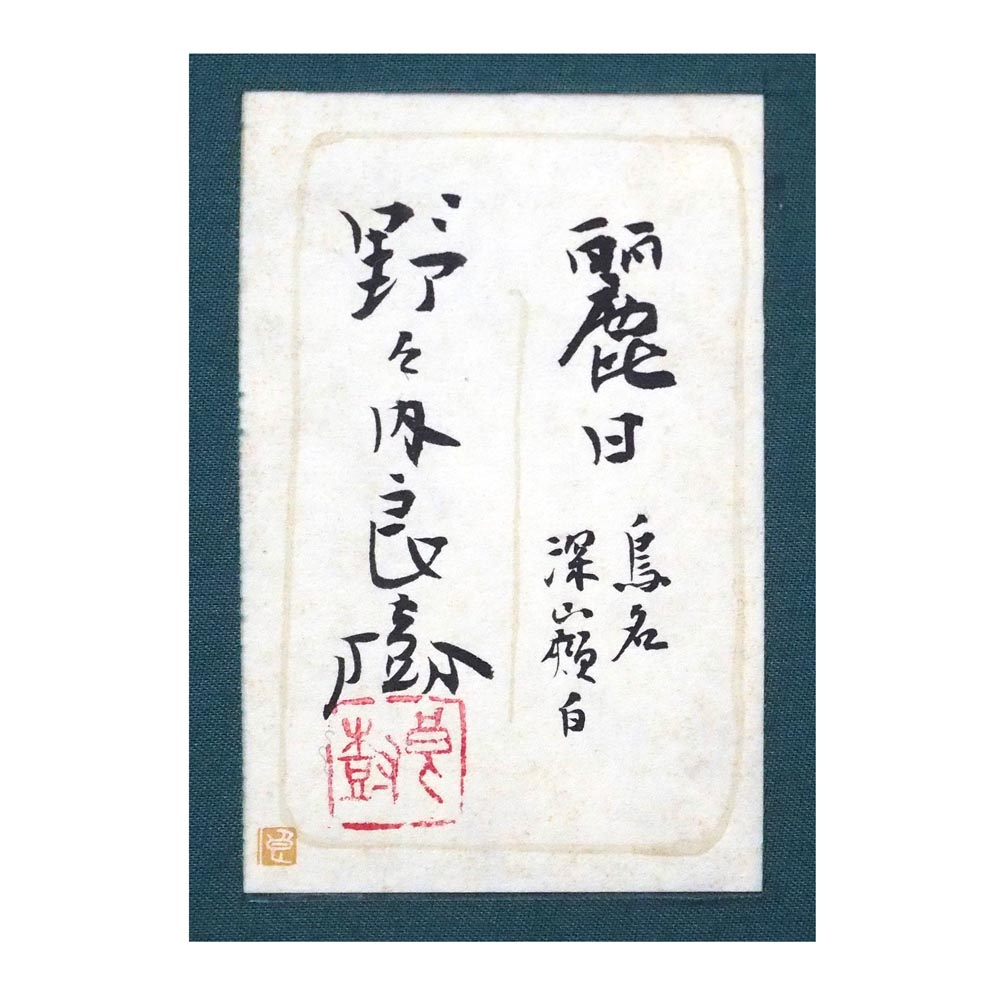 麗日
鳥名
深山頬白
野々内良樹
良樹
良